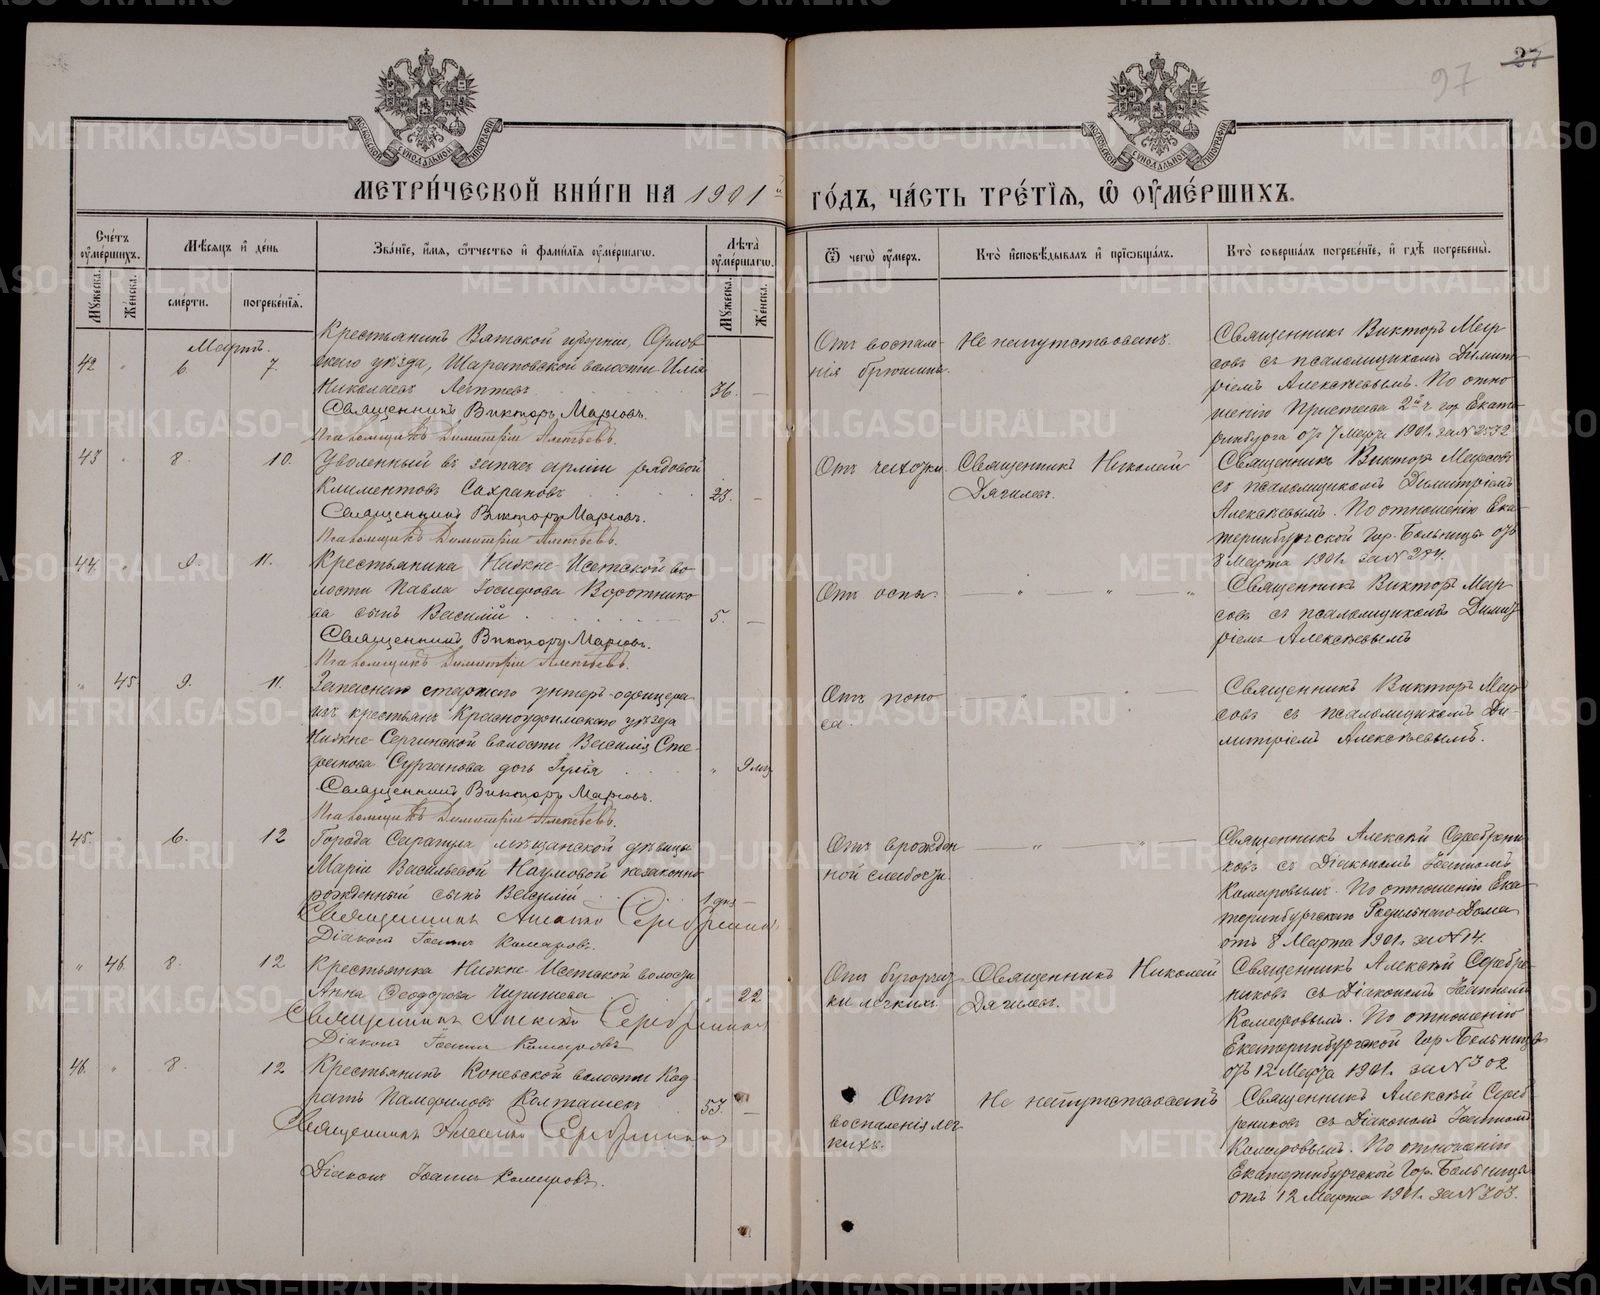 27
97
МОСКОВСКОЙ СѴНОДАЛЬНОЙ ТИПОГРАФІИ
МОСКОВСКОЙ СѴНОДАЛЬНОЙ ТИПОГРАФІИ
МЕТРИ́ЧЕСКОЙ КНИ́ГИ НА 1901й ГО́ДЪ, ЧА́СТЬ ТРЕ́ТІѦ, Ѽ ОУ҆МЕ́РШИХЪ.
Сче́тъ оу҆ме́ршихъ.
Мꙋжеска.
Же́нска.
Мѣ́сяцъ и҆ де́нь
сме́рти.
погребе́нія.
Зва́ніе, и҆́мя, ѻ҆́тчество и҆ фами́лія оу҆ме́ршагѡ.
Лѣ́та оу҆ме́ршагѡ.
Мꙋжеска.
Же́нска.
Ѿ чегѡ̀ оу҆́меръ.
Кто̀ и҆сповѣ́дывалъ и҆ прїѡбща́лъ.
Кто̀ соверша́лъ погребе́ніе, и҆ гдѣ̀ погребены̀.
Мартъ.
42 " 6. 7.
Крестьянинъ Вятской губерніи, Орлов
скаго уѣзда, Шараповской волости Илія
Николаевъ Лаптевъ 36. —
Священникъ Викторъ Марсовъ.
Псаломщикъ Димитрій Алексѣевъ.
Отъ воспале-
нія брюшины.
Не напутствованъ.
Священникъ Викторъ Мар
совъ съ псаломщикомъ Димит
ріемъ Алексѣевымъ. По отно
шенію Пристава 2й ч гор. Екате
ринбурга отъ 7 Марта 1901г. за № 2532
43 " 8. 10.
Уволенный въ запасъ арміи рядовой
Климентовъ Сахрановъ 23. —
Священникъ Викторъ Марсовъ.
Псаломщикъ Димитрій Алексѣевъ.
Отъ чахотки
Священникъ Николай
Дягилевъ.
Священникъ Викторъ Марсовъ
съ псаломщикомъ Димитріемъ
Алексѣевымъ. По отношенію Ека-
теринбургской Гор. Больницы отъ
8 Марта 1901г. за № 284.
44. " 9. 11.
Крестьянина Нижне-Исетской во-
лости Павла Іосифова Воротнико-
ва сынъ Василій 5. —
Священникъ Викторъ Марсовъ.
Псаломщикъ Димитрій Алексѣевъ.
Отъ оспы.
— " — " — "
Священникъ Викторъ Мар
совъ съ псаломщикомъ Димит
ріемъ Алексѣевымъ
" 45 9. 11.
Запаснаго старшаго унтеръ-офицера
изъ крестьянъ Красноуфимскаго уѣзда
Нижне-Сергинской волости Василія Сте-
фанова Сурганова дочь Іулія " 9 мц
Священникъ Викторъ Марсовъ.
Псаломщикъ Димитрій Алексѣевъ.
Отъ поно
са.
Священникъ Викторъ Мар
совъ съ псаломщикомъ Ди-
митріемъ Алексѣевымъ.
45. " 6. 12
Города Сарапула мѣщанской дѣвицы
Маріи Васильевой Наумовой незаконно
рожденный сынъ Василій 1 дн.
Священникъ Алексій Серебрениковъ
Діаконъ Іоаннъ Комаровъ.
Отъ врожден
ной слабости.
Священникъ Алексій Серебрени
ковъ съ Діакономъ Іоанномъ
Комаровымъ. По отношенію Ека-
теринбургскаго Родильнаго Дома
отъ 8 Марта 1901г. за № 14.
" 46. 8. 12
Крестьянка Нижне-Исетской волости
Анна Ѳеодорова Чиришева " 22
Священникъ Алексій Серебрениковъ
Діаконъ Іоаннъ Комаровъ
Отъ бугорчат
ки легкихъ.
Священникъ Николай
Дягилевъ.
Священникъ Алексій Серебре-
никовъ съ Діакономъ Іоанномъ
Комаровымъ. По отношенію
Екатеринбургской Гор. Больницы
отъ 12 Марта 1901г. за № 302
46. " 8. 12
Крестьянинъ Коневской волости Код
ратъ Памфиловъ Колташевъ 53. —
Священникъ Алексій Серебрениковъ
Діаконъ Іоаннъ Комаровъ.
Отъ
воспаленія лег
кихъ.
Не напутствованъ
Священникъ Алексій Сереб-
рениковъ съ Діакономъ Іоанномъ
Комаровымъ. По отношенію
Екатеринбургской Гор. Больницы
отъ 12 Марта 1901г. за № 303.
METRIKI.GASO-URAL.RU